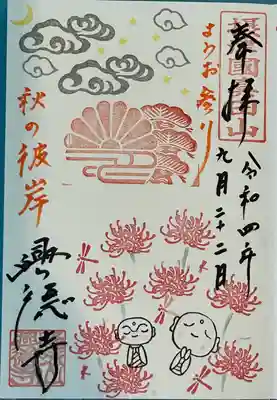 奉拝
令和四年
九月二十二日
ようお参り
秋の彼岸
興徳寺